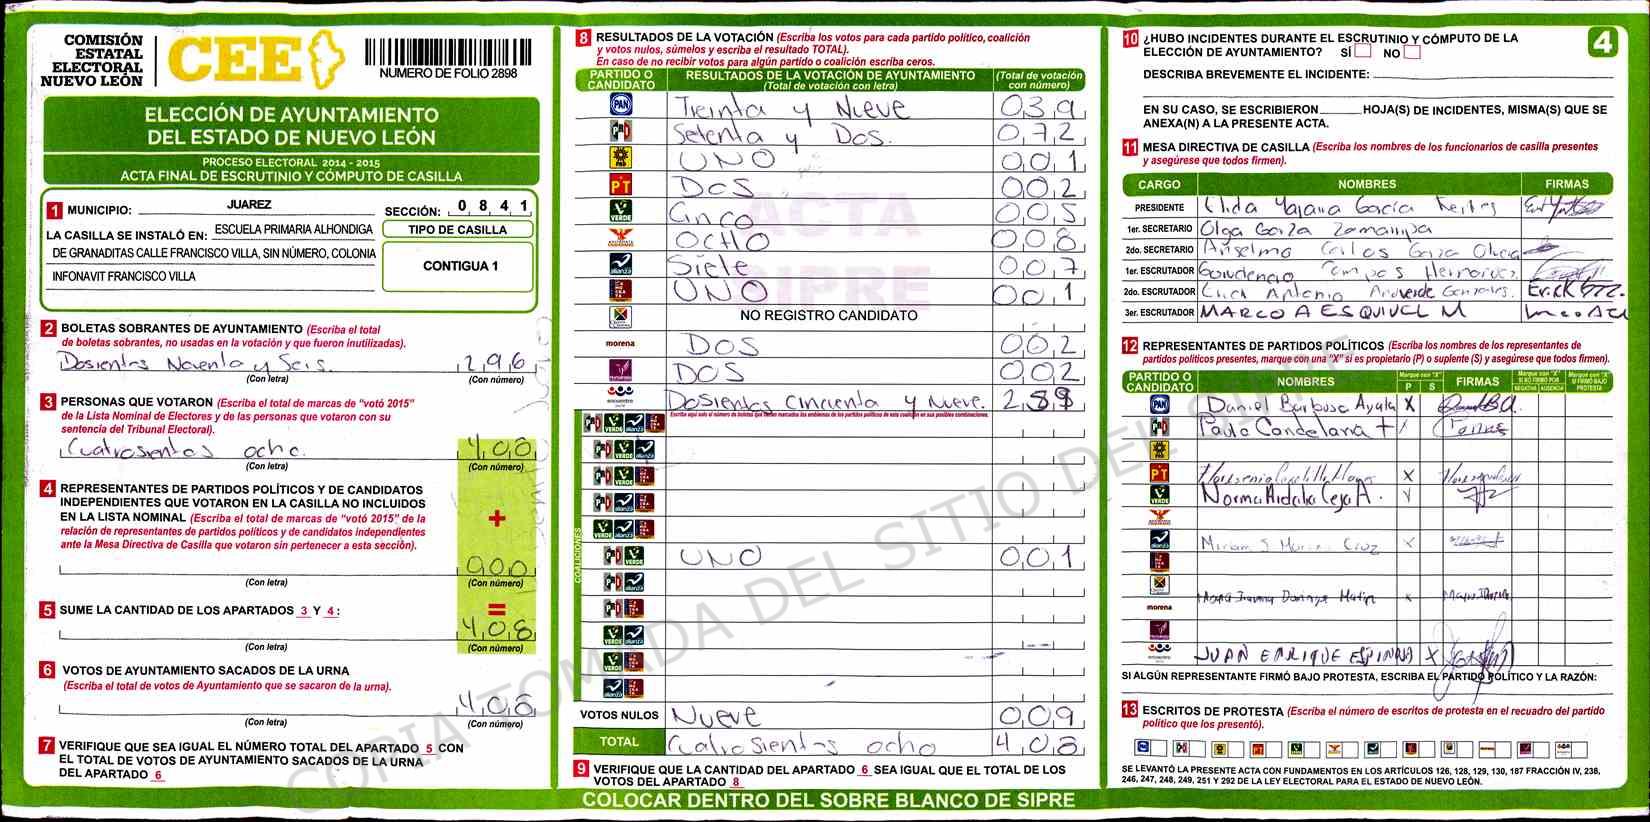 COMISIÓN
ESTATAL
ELECTORAL
NUEVO LEÓN
CEE
NUMERO DE FOLIO 2898
ELECCIÓN DE AYUNTAMIENTO
DEL ESTADO DE NUEVO LEÓN
PROCESO ELECTORAL 2014 - 2015
ACTA FINAL DE ESCRUTINIO Y CÓMPUTO DE CASILLA
1 MUNICIPIO: JUAREZ SECCIÓN: 0 8 4 1
LA CASILLA SE INSTALÓ EN: ESCUELA PRIMARIA ALHONDIGA
DE GRANADITAS CALLE FRANCISCO VILLA, SIN NÚMERO, COLONIA
INFONAVIT FRANCISCO VILLA
TIPO DE CASILLA
CONTIGUA 1
2 BOLETAS SOBRANTES DE AYUNTAMIENTO (Escriba el total
de boletas sobrantes, no usadas en la votación y que fueron inutilizadas).
Dosientos Noventa y Seis. 2 9 6
(Con letra) (Con número)
3 PERSONAS QUE VOTARON (Escriba el total de marcas de “votó 2015”
de la Lista Nominal de Electores y de las personas que votaron con su
sentencia del Tribunal Electoral).
Cuatrosientos ocho. 4 0 8
(Con letra) (Con número)
4 REPRESENTANTES DE PARTIDOS POLÍTICOS Y DE CANDIDATOS
INDEPENDIENTES QUE VOTARON EN LA CASILLA NO INCLUIDOS
EN LA LISTA NOMINAL (Escriba el total de marcas de “votó 2015” de la
relación de representantes de partidos políticos y de candidatos independientes
ante la Mesa Directiva de Casilla que votaron sin pertenecer a esta sección).
+
0 0 0
(Con letra) (Con número)
5 SUME LA CANTIDAD DE LOS APARTADOS 3 Y 4 : =
4 0 8
(Con letra) (Con número)
6 VOTOS DE AYUNTAMIENTO SACADOS DE LA URNA
(Escriba el total de votos de Ayuntamiento que se sacaron de la urna).
4 0 8
(Con letra) (Con número)
7 VERIFIQUE QUE SEA IGUAL EL NÚMERO TOTAL DEL APARTADO 5 CON
EL TOTAL DE VOTOS DE AYUNTAMIENTO SACADOS DE LA URNA
DEL APARTADO 6
8 RESULTADOS DE LA VOTACIÓN (Escriba los votos para cada partido político, coalición
y votos nulos, súmelos y escriba el resultado TOTAL).
En caso de no recibir votos para algún partido o coalición escriba ceros.
PARTIDO O CANDIDATO
RESULTADOS DE LA VOTACIÓN DE AYUNTAMIENTO
(Total de votación con letra)
(Total de votación con número)
PAN Treinta y Nueve 0 3 9
PRD Setenta y Dos. 0 7 2
PRD UNO 0 0 1
PT Dos 0 0 2
VERDE Cinco 0 0 5
OCHO 0 0 8
alianza Siete 0 0 7
UNO 0 0 1
NO REGISTRO CANDIDATO
morena DOS 0 0 2
DOS 0 0 2
encuentro Dosientos Cincuenta y Nueve. 2
Escriba aquí solo el número de boletas que fueron marcadas los emblemas de los partidos políticos de esta coalición en sus posibles combinaciones.
COALICIONES
VERDE UNO 0 0 1
VOTOS NULOS Nueve 0 0 9
TOTAL Cuatrosientos ocho 4 0 8
9 VERIFIQUE QUE LA CANTIDAD DEL APARTADO 6 SEA IGUAL QUE EL TOTAL DE LOS
VOTOS DEL APARTADO 8
COLOCAR DENTRO DEL SOBRE BLANCO DE SIPRE
ACTA
SIPRE
COPIA TOMADA DEL SITIO DEL SIPRE
4
10 ¿HUBO INCIDENTES DURANTE EL ESCRUTINIO Y CÓMPUTO DE LA
ELECCIÓN DE AYUNTAMIENTO? SÍ NO
DESCRIBA BREVEMENTE EL INCIDENTE:
EN SU CASO, SE ESCRIBIERON HOJA(S) DE INCIDENTES, MISMA(S) QUE SE
ANEXA(N) A LA PRESENTE ACTA.
11 MESA DIRECTIVA DE CASILLA (Escriba los nombres de los funcionarios de casilla presentes
y asegúrese que todos firmen).
CARGO NOMBRES FIRMAS
PRESIDENTE García
1er. SECRETARIO Olga Garza Zamarripa
2do. SECRETARIO Anselmo Carlos Garza
1er. ESCRUTADOR Gaudencio Campos Hernandez
2do. ESCRUTADOR Erick Antonio Gonzales. Erick
3er. ESCRUTADOR MARCO A ESQUIVEL M
12 REPRESENTANTES DE PARTIDOS POLÍTICOS (Escriba los nombres de los representantes de
partidos políticos presentes, marque con una “X” si es propietario (P) o suplente (S) y asegúrese que todos firmen).
PARTIDO O CANDIDATO
NOMBRES
Marque con "X"
P S
FIRMAS
Marque con "X" SI NO FIRMÓ POR
NEGATIVA AUSENCIA
Marque con "X" SI FIRMÓ BAJO PROTESTA
PAN Daniel Barbosa Ayala X
Paula Candelaria T
PT X
VERDE Norma Hidalia Ceja A.
alianza Miriam S Cruz X
morena
JUAN ENRIQUE ESPINOZA X
SI ALGÚN REPRESENTANTE FIRMÓ BAJO PROTESTA, ESCRIBA EL PARTIDO POLÍTICO Y LA RAZÓN:
13 ESCRITOS DE PROTESTA (Escriba el número de escritos de protesta en el recuadro del partido
político que los presentó).
SE LEVANTÓ LA PRESENTE ACTA CON FUNDAMENTOS EN LOS ARTÍCULOS 126, 128, 129, 130, 187 FRACCIÓN IV, 238,
246, 247, 248, 249, 251 Y 292 DE LA LEY ELECTORAL PARA EL ESTADO DE NUEVO LEÓN.